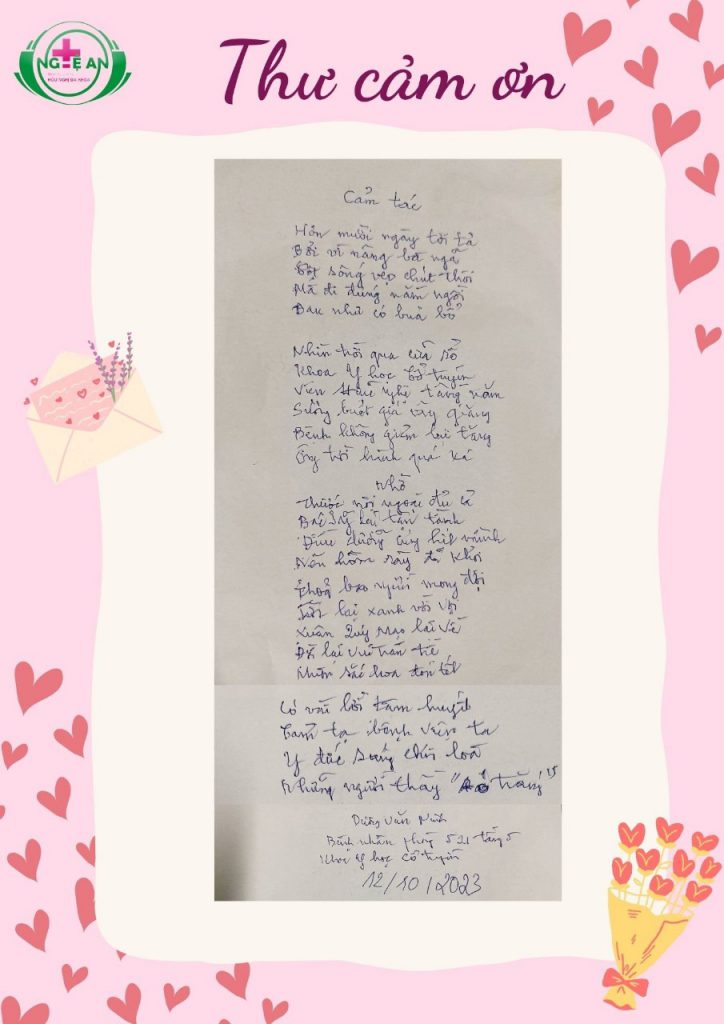 NGHỆ AN
HỮU NGHỊ ĐA KHOA
Thư cảm ơn
Cảm tác
Hơn mười ngày tơi tả
Bởi vì nâng bả ngã
sống vẹo chút thôi
Mà đi đứng nằm ngồi
Đau như có búa bổ
Nhìn trời qua cửa sổ
Khoa Y học cổ truyền
Viện nghệ tầng năm
buốt giá
Bệnh không giảm lại tăng
Ông trời hành quá xá
Nhờ
Thuốc nội ngoại đủ cả
Bác sỹ lại tận tành
dưỡng cũng hết mình
Nên hôm rày đã khỏi
Thoả bao người mong đợi
lại xanh vời vợi
Xuân Quý Mạo lại về
lại vui tràn trề
sắc hoa đón tết
Có vài lời tâm huyết
Cảm tạ bệnh viện ta
Y đức sáng chói loà
Những người thầy "Áo trắng"
Dương Văn Minh
Bệnh nhân phòng 521 tầng 5
Khoa Y học cổ truyền
12/10/2023